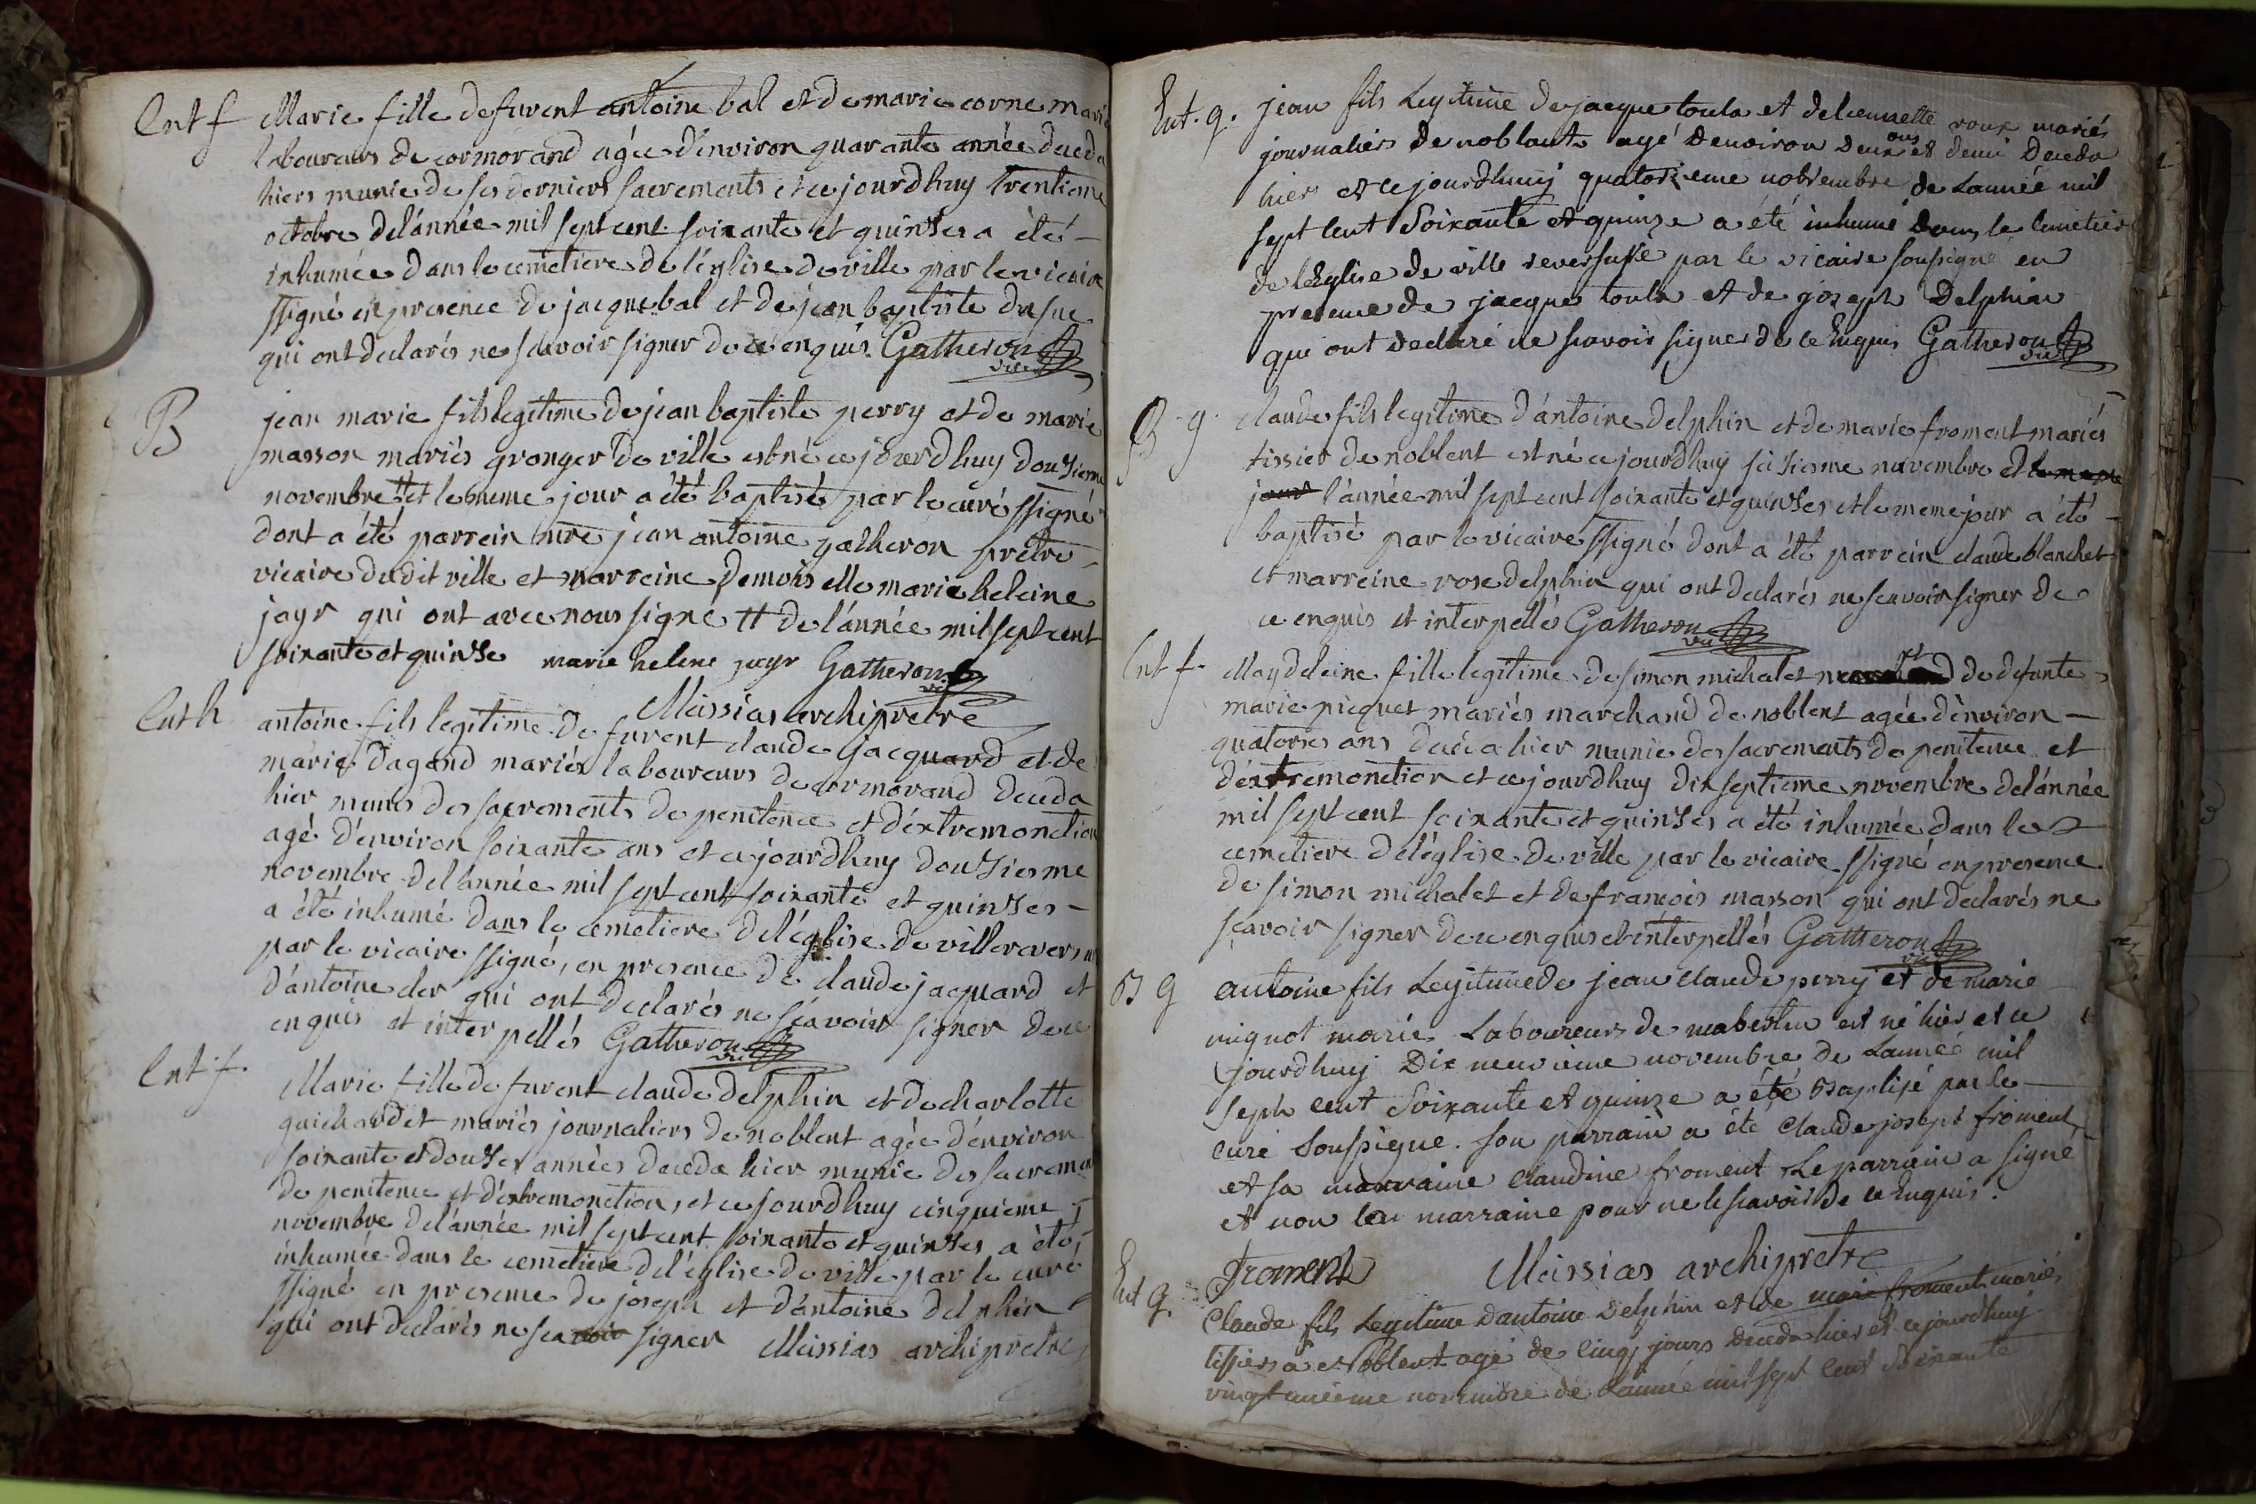 Ent f Marie fille de furent antoine bal et de marie corne mariés
laboureurs de cormorand agée d'environ quarante année deceda
hiers munie de ses derniers sacrements et ce jourdhuy trentieme
octobre de l'année mil sept cent soixante et quinses a été
inhumée dans le cemetiere de l'église de ville par le vicaire
ssigné en presence de jacque bal et de jean baptiste dusuc
qui ont declarés ne sçavoir signer de ce enquis Gatheron
vic
B jean marie fils legitime de jean baptiste perry et de marie
masson mariés granger de ville est né ce jourdhuy dousieme
novembre # et le meme jour a été baptisé par le curé ssigné
dont a été parrein mre jean antoine gatheron prètre
vicaire dudit ville et marreine Demoiselle marie heleine
jayr qui ont avec nous signé # de l'année mil sept cent
soixante et quinse marie helene jayr Gatheron
vic
Meissias archipretre
Ent h antoine fils legitime de furent claude Jacquard et de
marie Dagand mariés laboureurs de cormorand deceda
hier munis des sacrements de penitence et d'extremonction
agé d'environ soixante ans et ce jourdhuy dousiesme
novembre de l'année mil sept cent soixante et quinses
a été inhumé dans le cemetiere de l'église de villereversure
par le vicaire ssigné, en presence de claude jacquard et
d'antoine der qui ont declarés ne sçavoir signer de ce
enquis et interpellés Gatheron
vic
Ent f. Marie fille de furent claude delphin et de charlotte
guichardet mariés journaliers de noblent agée d'environ
soixante et douses années deceda hier munie des sacrements
de penitence et d'extremonction, et ce jourdhuy cinquieme
novembre de l'année mil sept cent soixante et quinses a été
inhumée dans le cemetiere de l'église de ville par le curé
ssigné en presence de joseph et d'antoine delphin
qui ont declarés ne sçavoir signer Meissias archipretre
Ent. g. jean fils Legitime de jacque toula et de Lennette roux mariés
journaliers de noblant agé denviron deux ans et demi deceda
hier et ce jourdhuij quatorzieme nobvembre de Lannée mil
sept Cent Soixante et quinze a été inhumé dans le Cimetier
de lEglise de ville reversure par le vicaire soussigné en
presence de jacque toula et de joseph Delphin
qui ont declaré ne scavoir signer de ce Enquis Gatheron
vic
B g. claude fils legitime d'antoine delphin et de marie froment mariés
tissier de noblent est né ce jourdhuy seisiesme novembre et le meme
jour l'année mil sept cent soixante et quinses et le meme jour a été
baptisé par le vicaire ssigné dont a été parrein claude blanchet
et marreine rose delphin qui ont declarés ne sçavoir signer de
ce enquis et interpellés Gatheron
vic
Ent f. Magdeleine fille legitime de simon michalet et de defunte
marie picquet mariés marchand de noblent agée d'environ
quatorses ans deceda hier munie des sacrements de penitence et
d'extremonction et ce jourdhuy dixseptieme novembre de l'année
mil sept cent soixante et quinses a été inhumée dans le
cemetiere de l'église de ville par le vicaire ssigné en presence
de simon michalet et de francois masson qui ont declarés ne
sçavoir signer de ce enquis et interpellés Gatheron
vic
B g antoine fils Legitime de jean claude perrij et de marie
mignot marié Laboureurs de mabestru est né hier et ce
jourdhuij Dix neuvieme novembre de Lannée mil
Sept cent Soixante et quinze a été Baptisé par le
curé Soussigne. son parrain a été Claude joseph froment
et sa marraine Claudine froment Le parrain a signé
et non la marraine pour ne le scavoir de ce Enquis.
froment Meissias archipretre
Ent g. Claude fils Legitime dantoine Delphin et de marie froment mariés
tissiers a Noblent agé de Cinq jours deceda hier et ce jourdhuij
vingt unieme novembre de Lannée mil sept Cent soixante